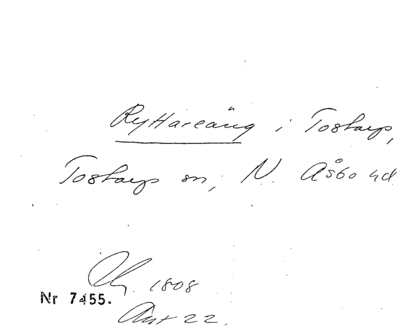 Ryttareäng i Tostarp,
Tostarps sn, N. Åsbo hd
Ch. 1808
Nr 7455.
Akt 22.